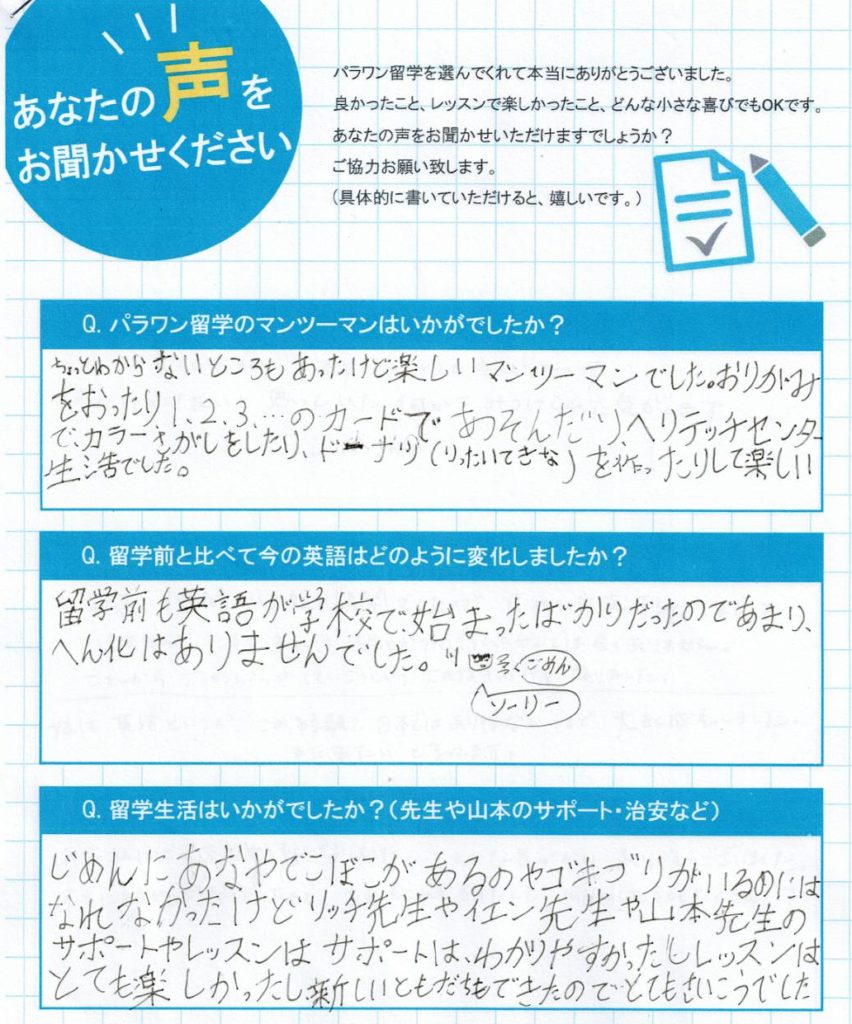 あなたの声を
お聞かせください
パラワン留学を選んでくれて本当にありがとうございました。
良かったこと、レッスンで楽しかったこと、どんな小さな喜びでもOKです。
あなたの声をお聞かせいただけますでしょうか？
ご協力お願い致します。
(具体的に書いていただけると、嬉しいです。)
Q. パラワン留学のマンツーマンはいかがでしたか？
ちょっとわからないところもあったけど楽しいマンツーマンでした。おりがみ
をおったり1、2、3、…のカードであそんだり、ヘリテッチセンター
で、カラーさがしをしたり、ドーナツ(りったいてきな)を作ったりして楽しい
生活でした。
Q. 留学前と比べて今の英語はどのように変化しましたか？
留学前も英語が学校で、始まったばかりだったのであまり、
へん化はありませんでした。
ごめん
ソーリー
Q. 留学生活はいかがでしたか？(先生や山本のサポート・治安など)
じめんにあなやでこぼこがあるのやゴキブリがいるのには
なれなかったけどリッチ先生やイエン先生や山本先生の
サポートやレッスンはサポートは、わかりやすかったしレッスンは
とても楽しかったし新しいともだちもできたのでとてもさいこうでした